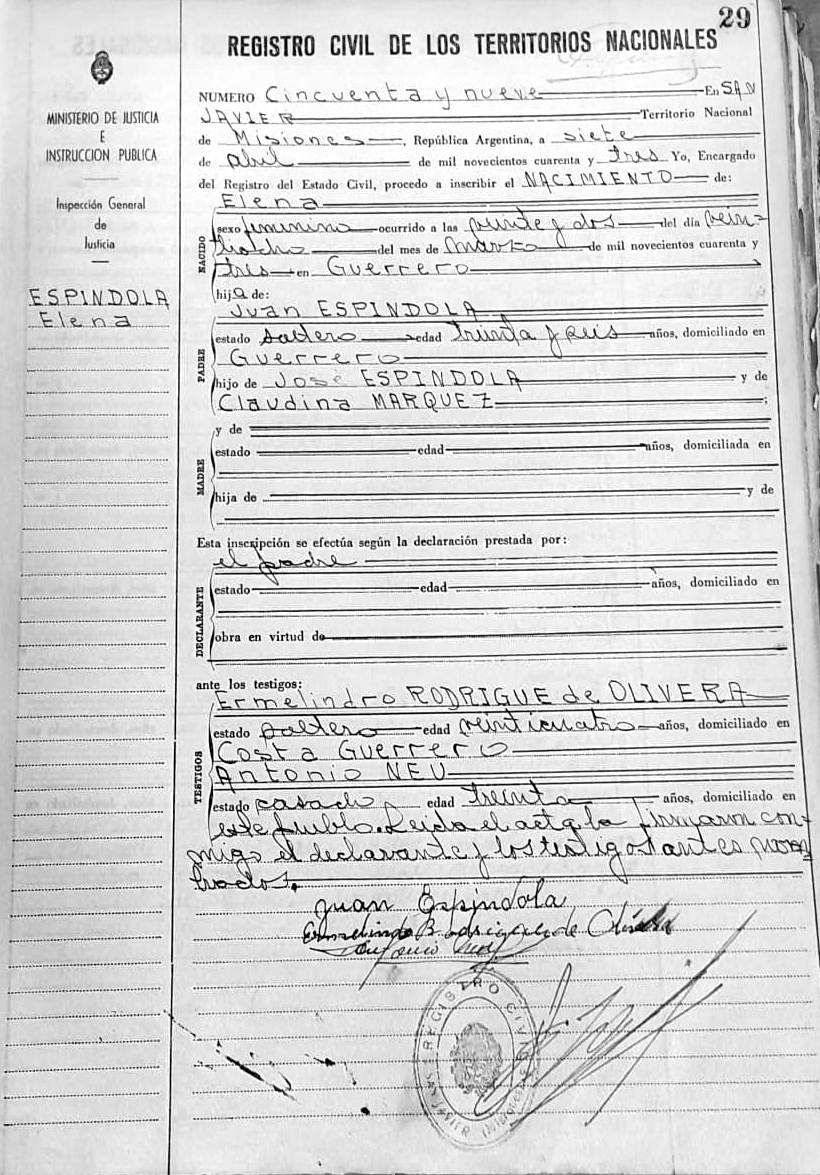 29
REGISTRO CIVIL DE LOS TERRITORIOS NACIONALES
MINISTERIO DE JUSTICIA
E
INSTRUCCION PUBLICA
Inspección General
de
Justicia
ESPINDOLA
Elena
NUMERO Cincuenta y nueve En SAN
JAVIER Territorio Nacional
de Misiones, República Argentina, a siete
de abril de mil novecientos cuarenta y tres Yo, Encargado
del Registro del Estado Civil, procedo a inscribir el NACIMIENTO de:
Elena
NACIDO
sexo femenino ocurrido a las veinte y dos del día vein-
tiocho del mes de marzo de mil novecientos cuarenta y
tres en Guerrero
hija de:
Juan ESPINDOLA
PADRE
estado soltero edad treinta y seis años, domiciliado en
Guerrero
hijo de José ESPINDOLA y de
Claudina MARQUEZ ;
MADRE
y de
estado edad años, domiciliada en
hija de y de
Esta inscripción se efectúa según la declaración prestada por:
el padre
DECLARANTE
estado edad años, domiciliado en
obra en virtud de
ante los testigos:
Ermelindro RODRIGUE de OLIVERA
TESTIGOS
estado soltero edad veinticuatro años, domiciliado en
Costa Guerrero
Antonio NEU
estado casado edad treinta años, domiciliado en
este pueblo. Leida el acta la firmaron con-
migo el declarante y los testigos antes nom-
brados.
Juan Espindola
de Olivera
Antonio
REGISTRO CIVIL
SAN JAVIER (Misiones)